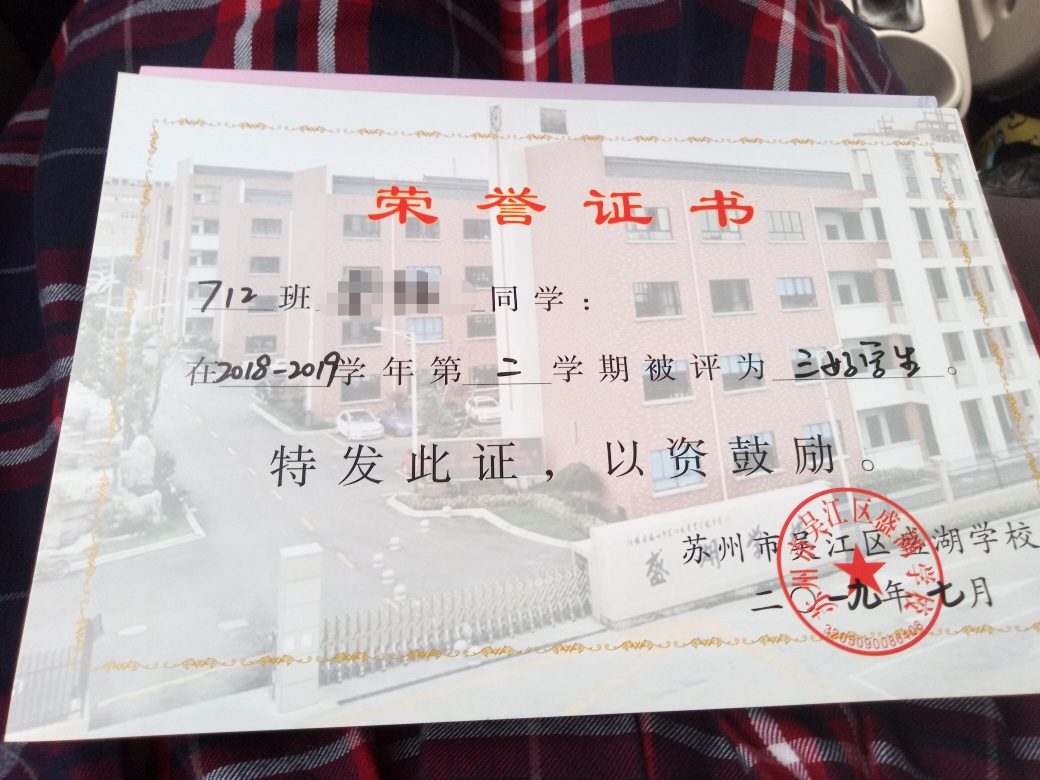 荣誉证书
712班 同学：
在2018-2019学年第二学期被评为三好学生。
特发此证，以资鼓励。
盛湖学
苏州市吴江区盛湖学校
二〇一九年七月
苏州市吴江区盛湖学校